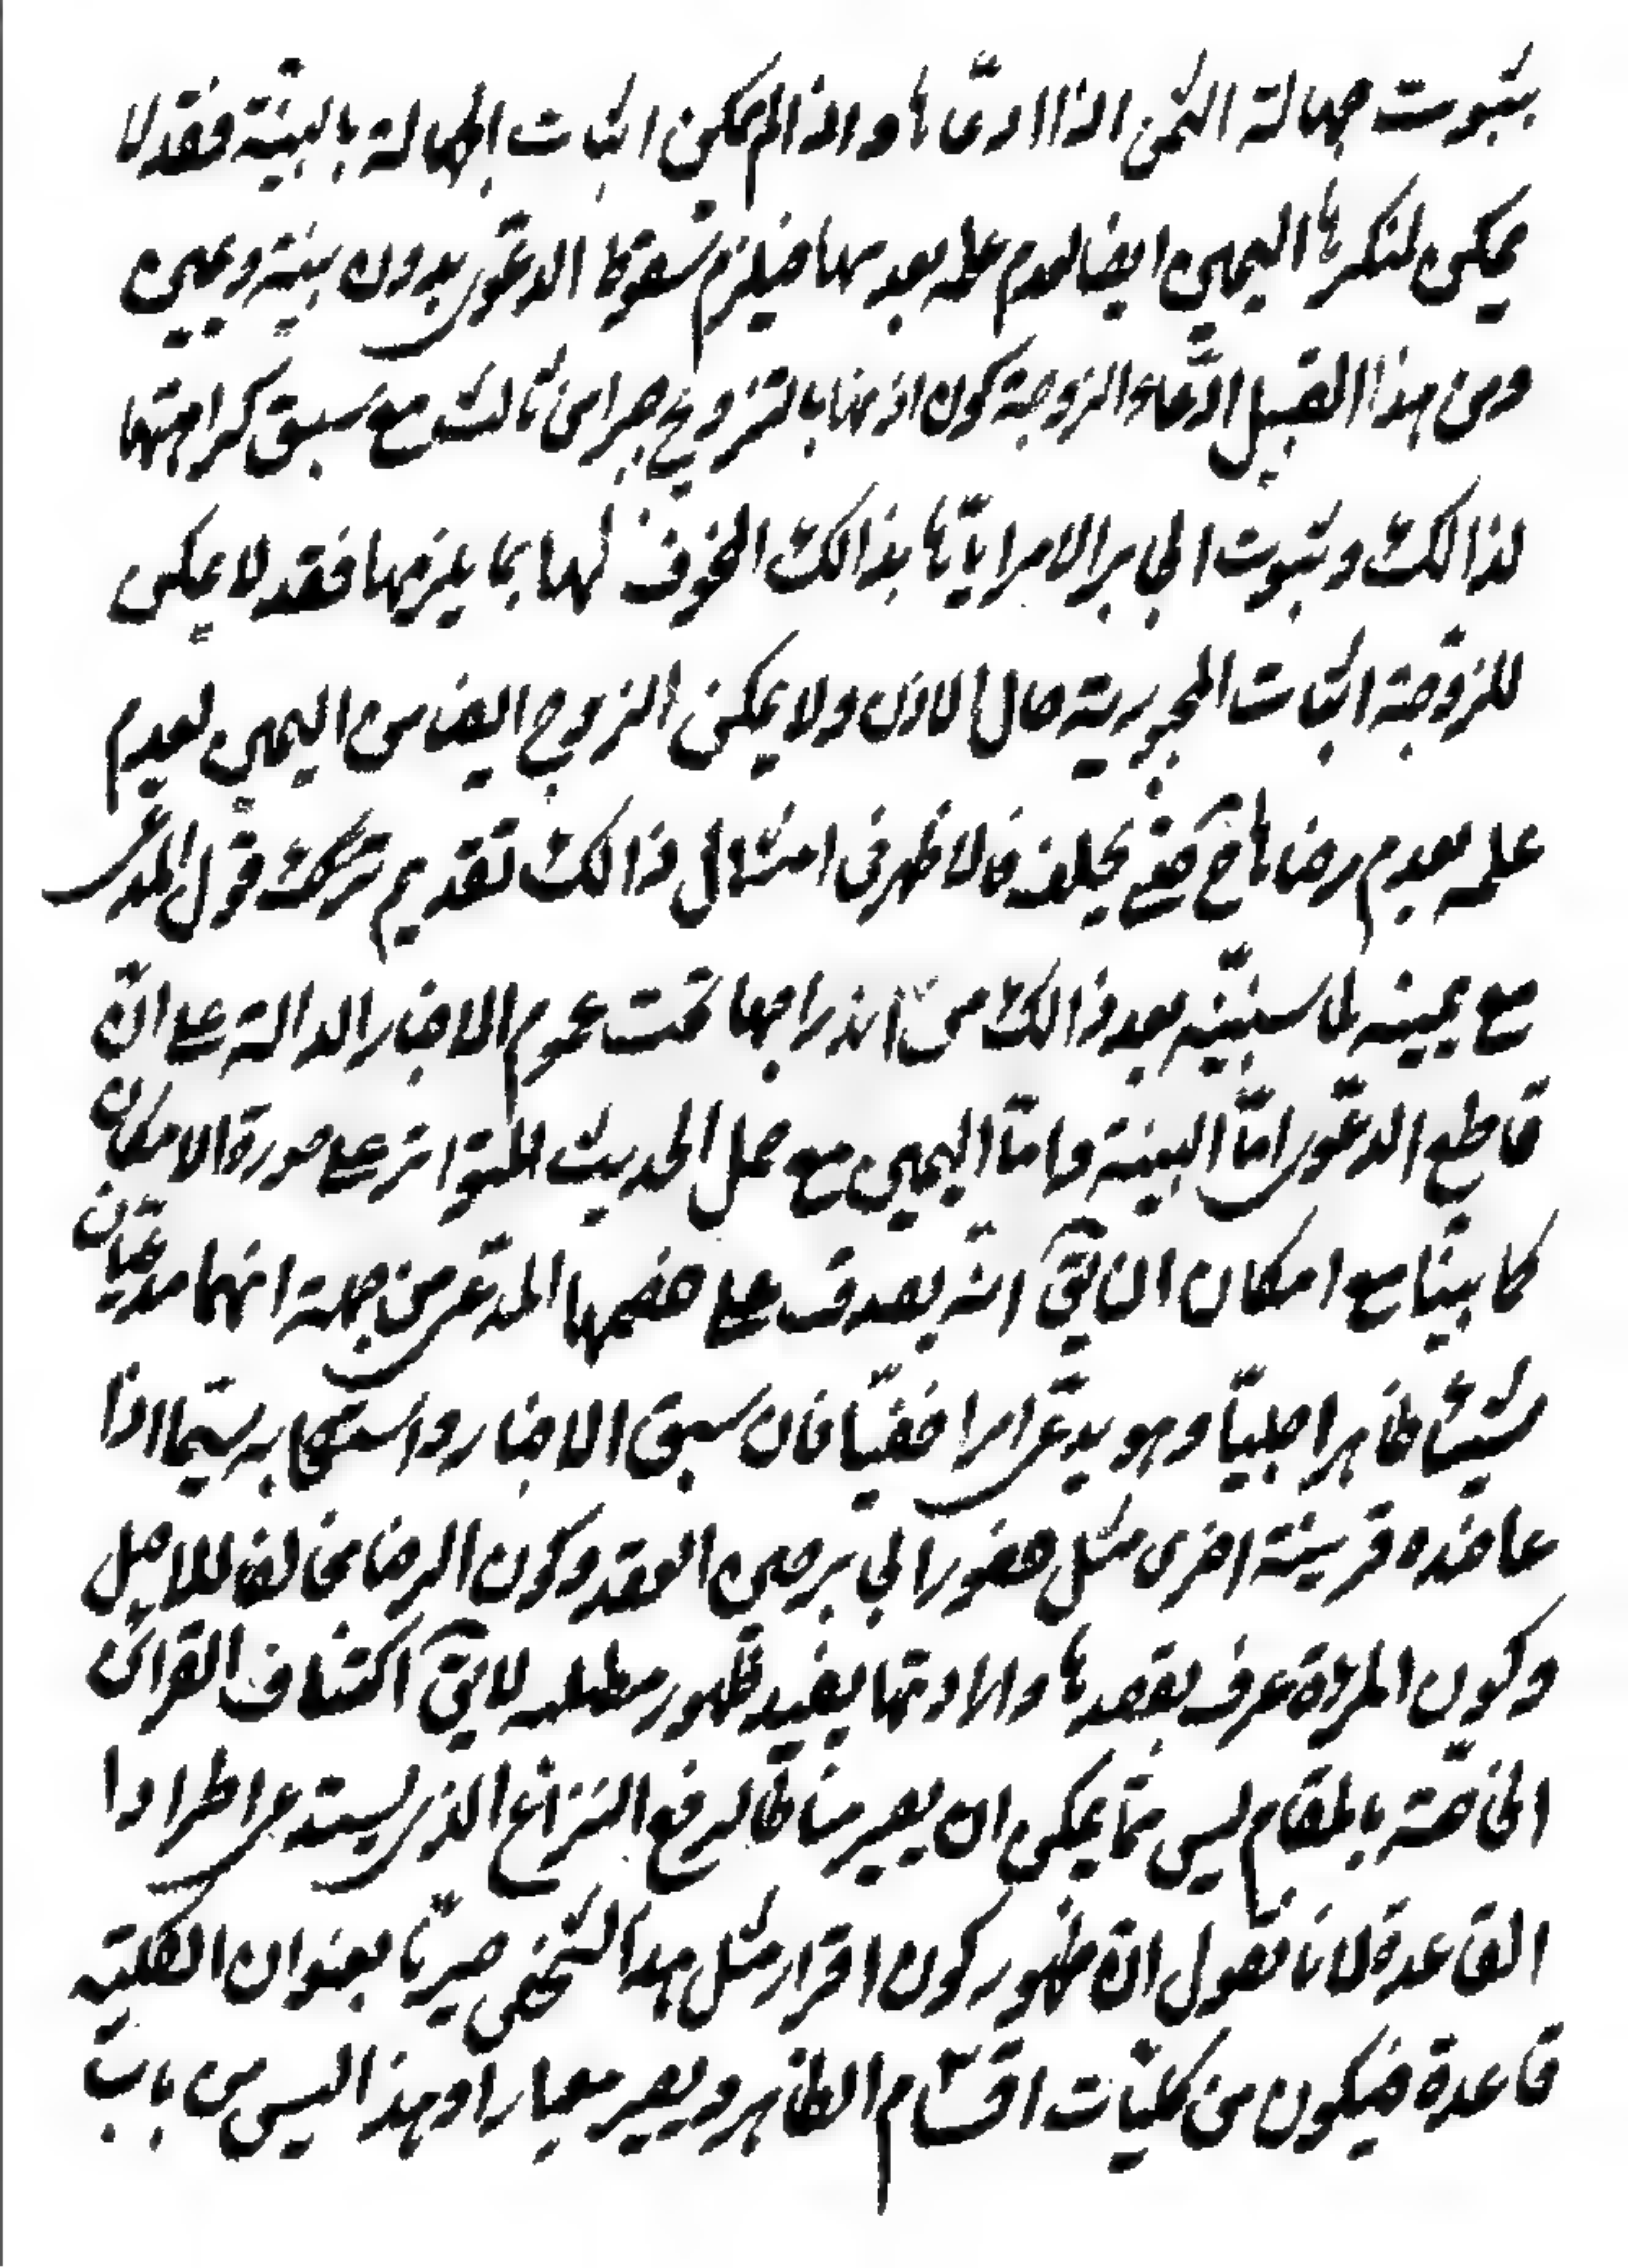 بثبوت جهالة الثمن اذا ادعّاها و اذا لم يمكن اثبات الجهالة بالبينّة فقد لا
يمكن لمنكرها اليمين ايضا لعدم علمه بعدمها فيلزم سقوط الدعوّى بدون بينّة و يمين
و من هذا القبيل ادّعاء الزوجة كون اذنها بالتزويج جبرا من ثالث مع سبق كراهتها
لذالك و ثبوت الجابر الامر ايّاها بذالك المخوف لها بما يلزمها فقد لا يمكن
للزوجّة اثبات المجبورية حال الاذن و لا يمكن الزوج ايضا من اليمين لعدم
علمه بعدم رضاها ح حتى يحلف فالاظهر فى امثال ذالك تقديم قول المدعى
مع يمينه لما سنبيّنه بعد ذالك من اندراجها تحت عموم الاخبار الدالة على انّ
قاطع الدعوّى امّا البينة و امّا اليمين مع حمل الحديث المتواتر على صورة الامكان
كما بيّنا مع امكان ان يقّ انّه يصدق على خصمها المدعّى من جهة انهما مدعّيان
شيئا ظاهرا جليّا و هو يدعّى امرا خفيّا فان سبق الاخبار و استصحابه سيّما اذا
عاضده قرينة اخرى مثل حضور الجابر حين العقد و كون الرضا مخالفا للاصل
و كون المرأة عرف بقصدها و ارادتها يفيد ظهور مطلبه لا يقّ اكتشاف القرائن
الخاصّة بالمقام ليس ممّا يمكن ان يصير مناطا لرفع النزاع الذى يستدعى اطرادا
القاعدة لانا نقول انّ ظهور كون اقرار مثل هذا الشخص جبريّا بعنوان الكليّة
قاعدة فيكون من كليّات اقسّام الظاهر و يصير معيارا و هذا ليس من باب